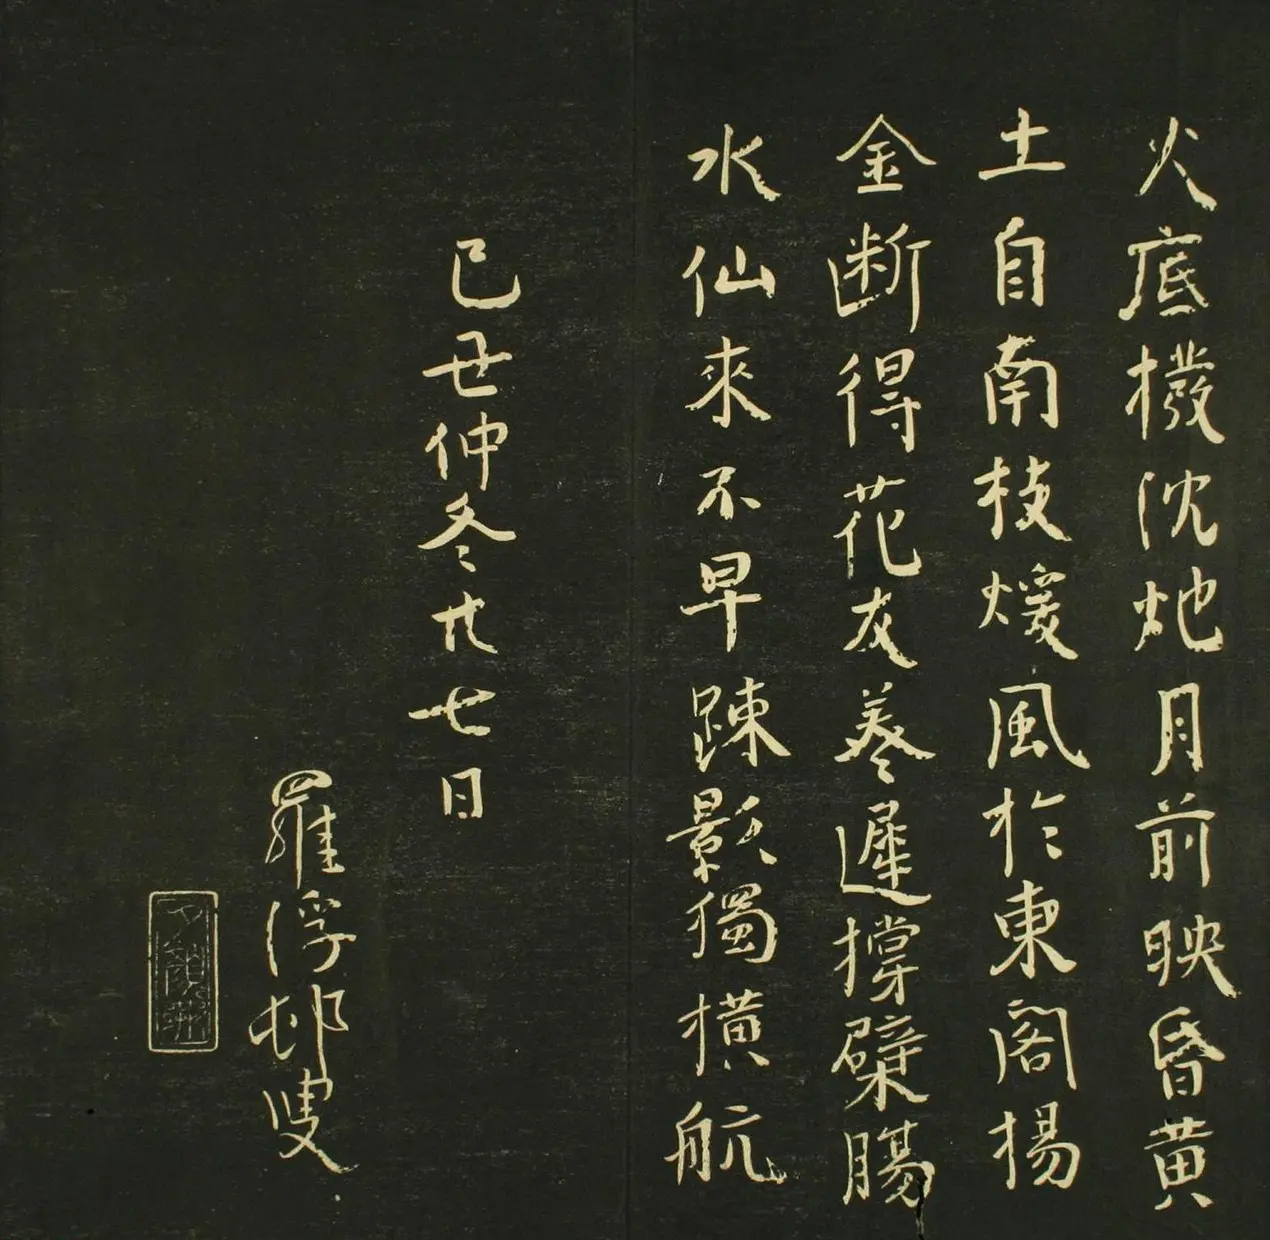 火底撥沈灺月前映昏黄
土自南枝煖風於東閣揚
金断得花友遲撐檗腸
水仙來不早踈影獨橫航
己丑仲冬廿七日
羅浮邨叟